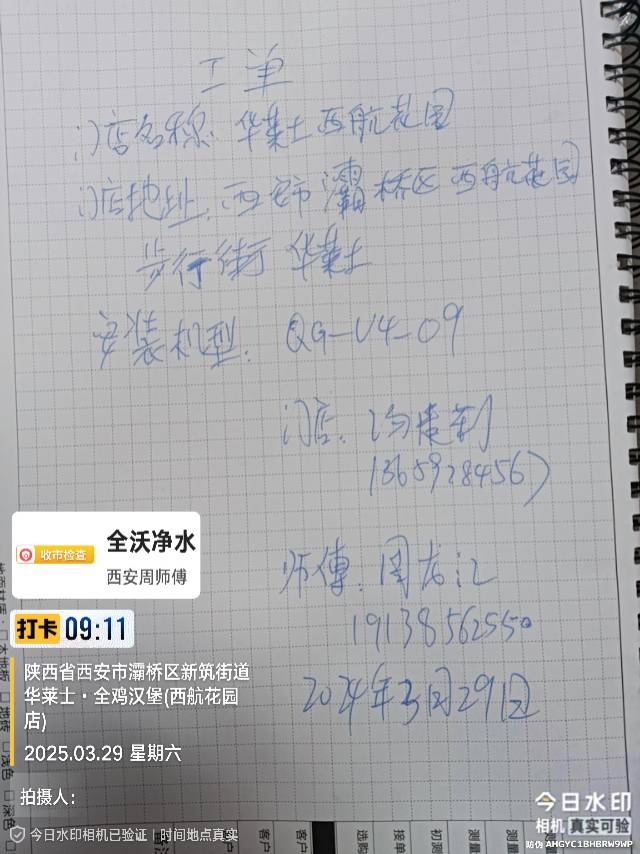 工单
门店名称：华莱士西航花园
门店地址：西安市灞桥区西航花园
步行街 华莱士
安装机型：QG-V4-09
门店：冯建利
13659284567
师傅：周龙江
19138562550
2024年3月29日
收市检查
全沃净水
西安周师傅
打卡 09:11
陕西省西安市灞桥区新筑街道
华莱士·全鸡汉堡(西航花园
店)
2025.03.29 星期六
拍摄人：
今日水印相机已验证 | 时间地点真实
今日水印
相机 真实可验
防伪 AHGYC1BHBRW9WP
客户
客户
选购
接单
初测
测量
测量
浅色
深色